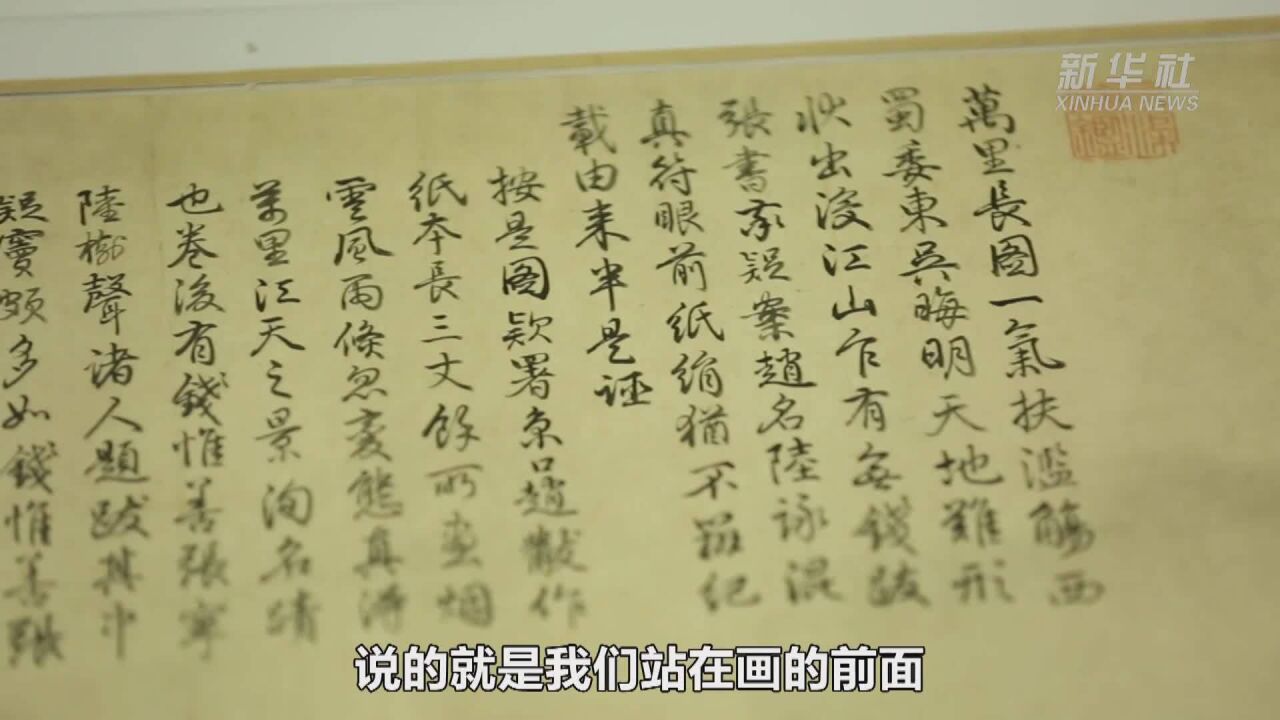 新华社
XINHUA NEWS
萬里長圖一氣扶濫觴西
蜀委東吳晦明天地難形
狀出沒江山乍有無錢跋
張書家疑案趙名陸詠混
真符眼前紙絹猶不
紀
載由來半是誣
按是圖款署京口趙黻作
紙本長三丈餘所畫烟
雲風雨倏忽變態真得
萬里江天之景洵名蹟
也卷後有錢惟善張寧
陸樹聲諸人題跋其中
疑竇頗多如錢惟善張
说的就是我们站在画的前面